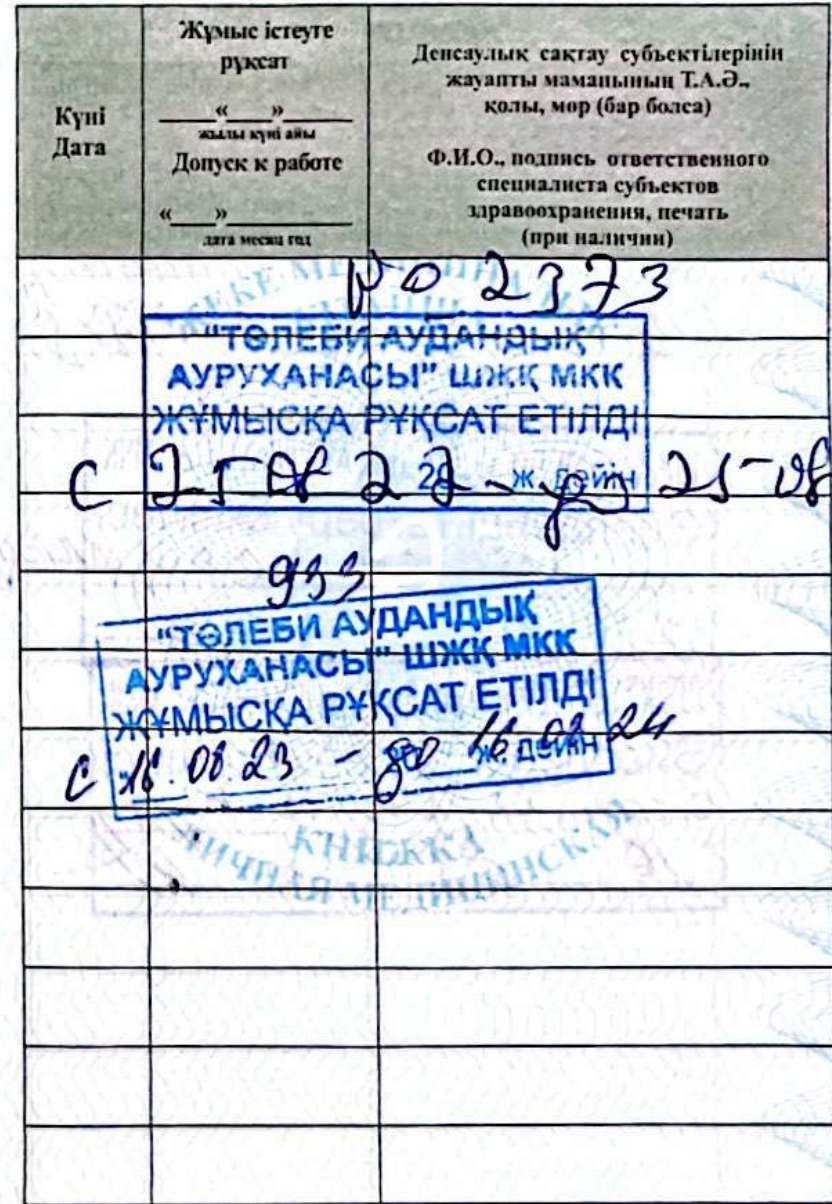 Күні
Дата
Жұмыс істеуге
рұқсат
____«___»____
жылы күні айы
Допуск к работе
«___»________
дата месяц год
Денсаулық сақтау субъектілерінің
жауапты маманының Т.А.Ә.,
қолы, мөр (бар болса)
Ф.И.О., подпись ответственного
специалиста субъектов
здравоохранения, печать
(при наличии)
№ 2373
"ТӨЛЕБИ АУДАНДЫҚ
АУРУХАНАСЫ" ШЖҚ МКК
ЖҰМЫСҚА РҰҚСАТ ЕТІЛДІ
с 25 08 22 - до 25-08
ж. дейін
933
"ТӨЛЕБИ АУДАНДЫҚ
АУРУХАНАСЫ" ШЖҚ МКК
ЖҰМЫСҚА РҰҚСАТ ЕТІЛДІ
с 16.08.23 - до 16.08.24
ж. дейін
КНИЖКА
ЛИЧНАЯ МЕДИЦИНСКАЯ